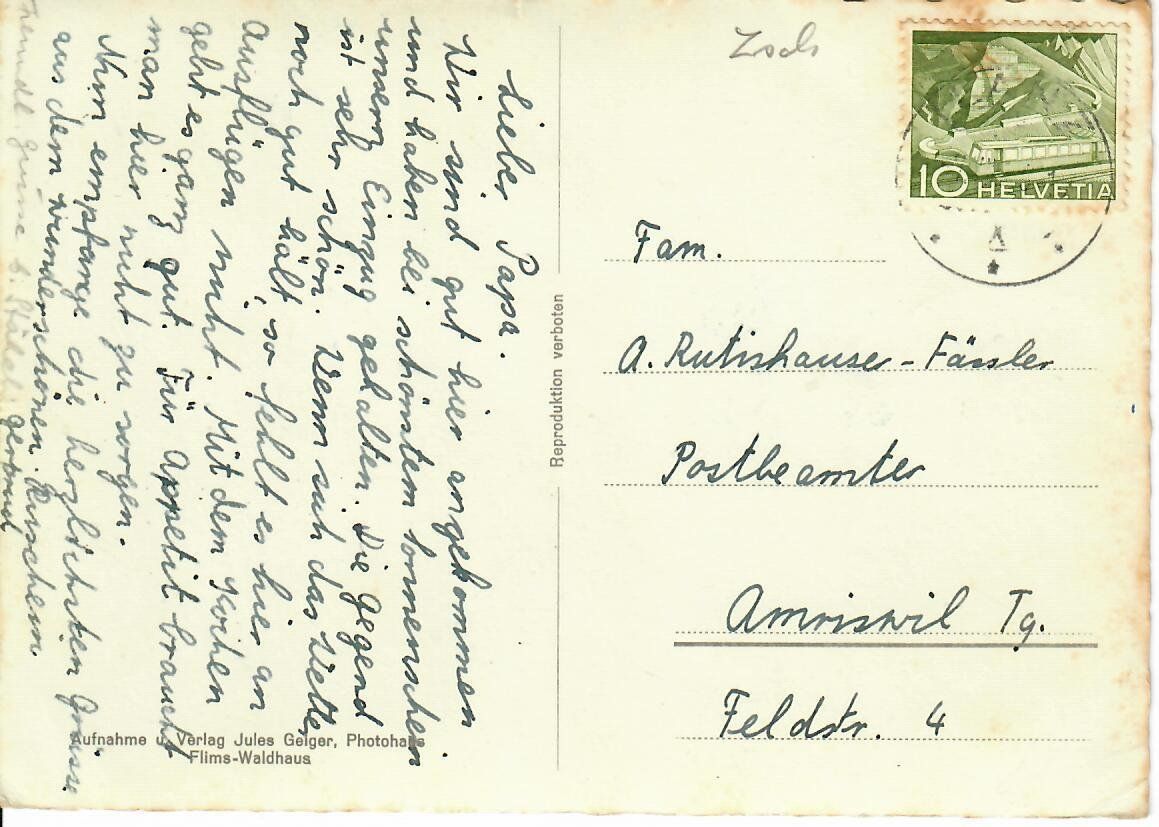 Lieber Papa.
Wir sind gut hier angekommen
und haben bei schönstem Sonnenschein
unsern Einzug gehalten. Die Gegend
ist sehr schön. Wenn sich das Wetter
noch gut hält, so fehlt es hier an
Ausflügen nicht. Mit dem Kochen
geht es ganz gut. Für Appetit braucht
man hier nicht zu sorgen.
Nun empfange die herzlichsten Grüsse
aus dem wunderschönen
Gertrud
Aufnahme u. Verlag Jules Geiger, Photohaus
Flims-Waldhaus
Reproduktion verboten
10 HELVETIA
Fam.
A. Rutishauser-Fässler
Postbeamter
Amriswil Tg.
Feldstr. 4